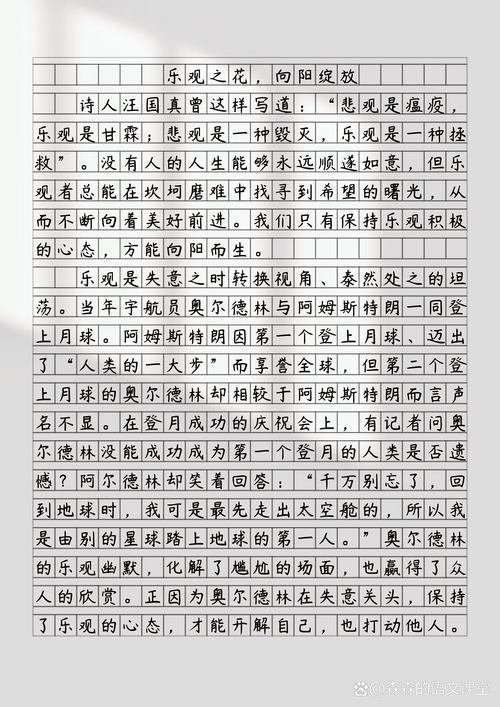 乐观之花，向阳绽放
诗人汪国真曾这样写道：“悲观是瘟疫，
乐观是甘霖；悲观是一种毁灭，乐观是一种拯
救”。没有人的人生能够永远顺遂如意，但乐
观者总能在坎坷磨难中找寻到希望的曙光，从
而不断向着美好前进。我们只有保持乐观积极
的心态，方能向阳而生。
乐观是失意之时转换视角、泰然处之的坦
荡。当年宇航员奥尔德林与阿姆斯特朗一同登
上月球。阿姆斯特朗因第一个登上月球、迈出
了“人类的一大步”而享誉全球，但第二个登
上月球的奥尔德林却相较于阿姆斯特朗而言声
名不显。在登月成功的庆祝会上，有记者问奥
尔德林没能成功成为第一个登月的人类是否遗
憾？阿尔德林却笑着回答：“千万别忘了，回
到地球时，我可是最先走出太空舱的，所以我
是由别的星球踏上地球的第一人。”奥尔德林
的乐观幽默，化解了尴尬的场面，也赢得了众
人的欣赏。正因为奥尔德林在失意关头，保持
了乐观的心态，才能开解自己，也打动他人。
@森森的语文课堂